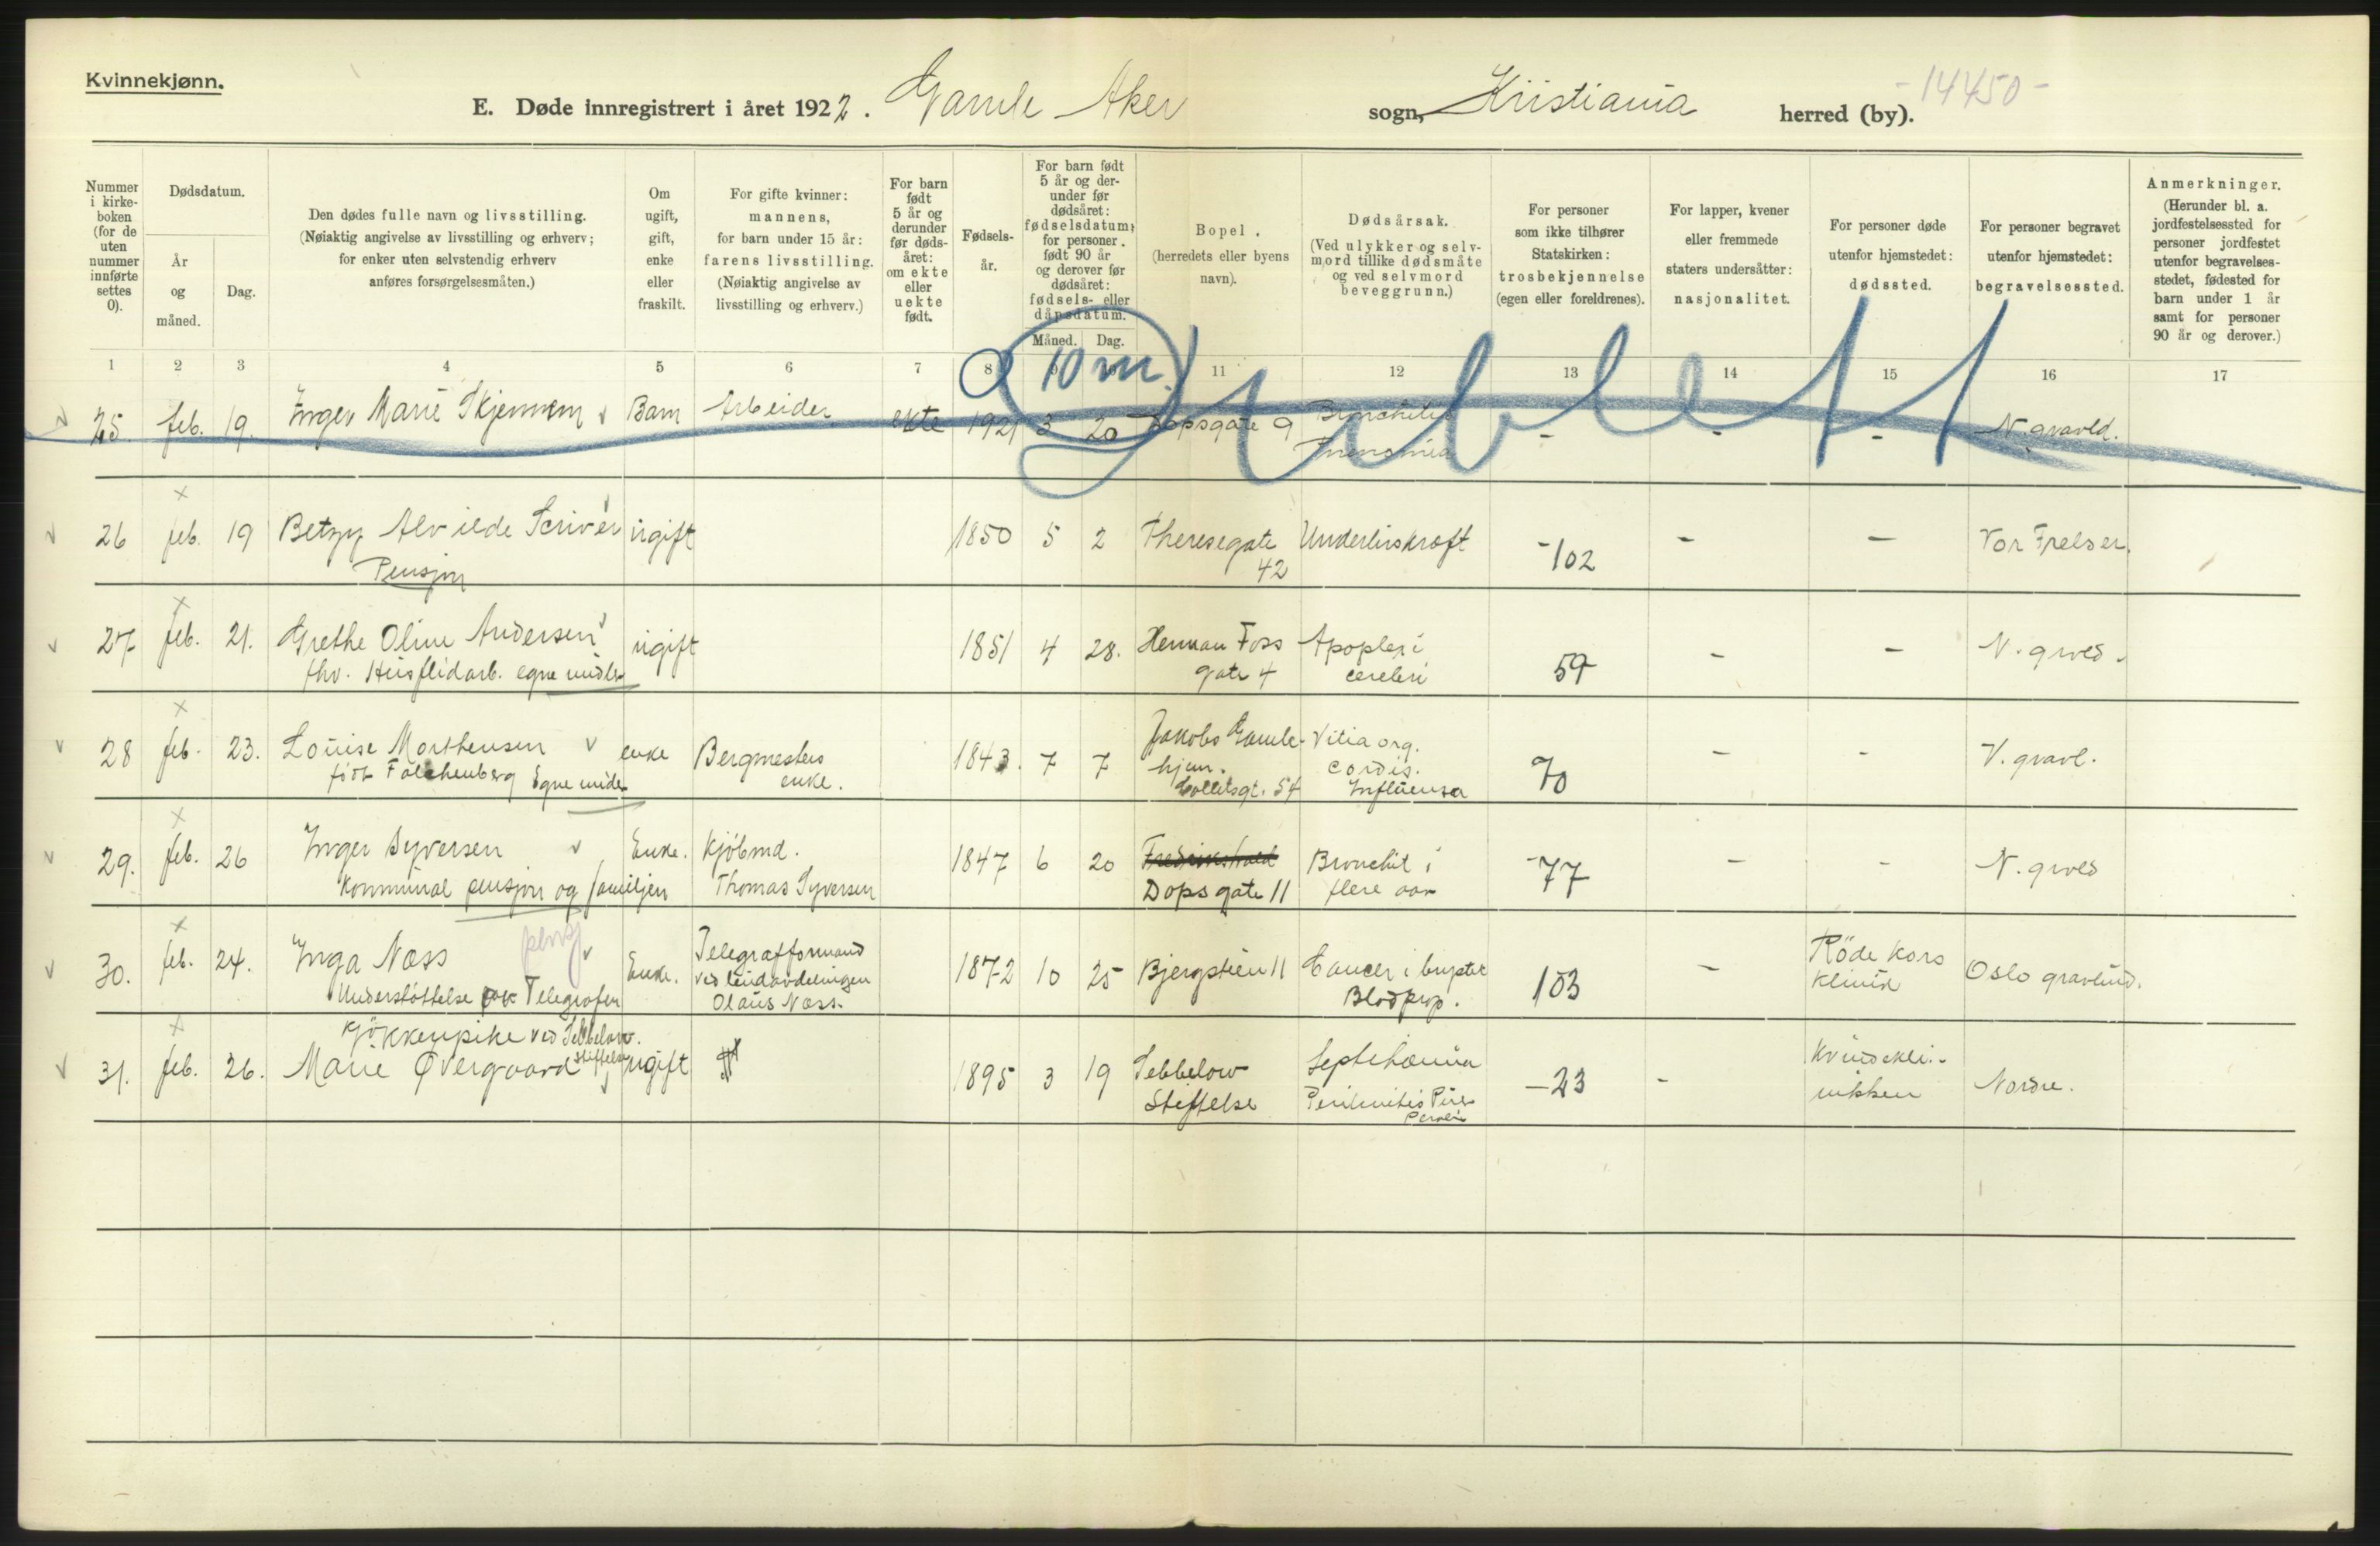 Kvinnekjønn.
E. Døde innregistrert i året 1922. Gamle Aker sogn, Kristiania herred (by). -14450-
Nummer i kirkeboken (for de uten nummer innførte settes 0).
Dødsdatum.
År og måned.
Dag.
Den dødes fulle navn og livsstilling.
(Nøiaktig angivelse av livsstilling og erhverv;
for enker uten selvstendig erhverv
anføres forsørgelsesmåten.)
Om ugift, gift, enke eller fraskilt.
For gifte kvinner:
mannens,
for barn under 15 år:
farens livsstilling.
(Nøiaktig angivelse av
livsstilling og erhverv.)
For barn født 5 år og derunder før dødsåret: om ekte eller uekte født.
Fødselsår.
For barn født 5 år og derunder før dødsåret: fødselsdatum; for personer født 90 år og derover før dødsåret: fødsels- eller dåpsdatum.
Måned. Dag.
Bopel.
(herredets eller byens
navn).
Dødsårsak.
(Ved ulykker og selvmord tillike dødsmåte og ved selvmord beveggrunn.)
For personer
som ikke tilhører
Statskirken:
trosbekjennelse
(egen eller foreldrenes).
For lapper, kvener
eller fremmede
staters undersåtter:
nasjonalitet.
For personer døde
utenfor hjemstedet:
dødssted.
For personer begravet
utenfor hjemstedet:
begravelsessted.
Anmerkninger.
(Herunder bl. a.
jordfestelsessted for
personer jordfestet
utenfor begravelses-
stedet, fødested for
barn under 1 år
samt for personer
90 år og derover.)
1 2 3 4 5 6 7 8 9 10 11 12 13 14 15 16 17
10 m. Dublett
25. feb. 19. Inger Marie Skjennem Barn Arbeider ekte 1921 3 20 Dopsgate 9 Bronchitis - - - N. gravld.
Pneumonia
26 feb. 19 Betzy Alvilde Scriver ugift 1850 5 2 Theresegate Underlivskræft -102 - - Vor Frelser.
Pensjon 42
27 feb. 21. Grethe Oline Andersen ugift 1851 4 28. Herman Foss Apoplexi 59 - - N. grvld.
fhv. Husflidarb. egne midler gate 4 cerebri
28 feb. 23. Louise Morthensen enke Bergmesters 1843. 7 7 Jakobs Gamle- Vitia org. 70 - - V. gravl.
født Falchenberg Egne midler enke. hjem. cordis.
Collettsgt. 54 Influensa
29. feb. 26 Inger Syversen Enke. Kjøbmd. 1847 6 20 Fredrikshald Bronchit i -77 - - N. grvld
Kommunal pensjon og familjen Thomas Syversen Dopsgate 11 flere aar
30. feb. 24. Inga Næss pensj Enke. Telegrafformand 1872 10 25 Bjergstien 11 Cancer i brystet 103 - Röde Kors Oslo gravlund.
Understøttelse av Telegrafen ved leidavdelingen Olaus Næss. Blodprop. Klinik
Kjökkenpike ved Sebbelow. Stiftelse
31. feb. 26. Marie Øvergaard ugift 1895 3 19 Sebbelow Septihæmia -23 - Kvindekli- Nordre.
Stiftelse Peritonitis nikken